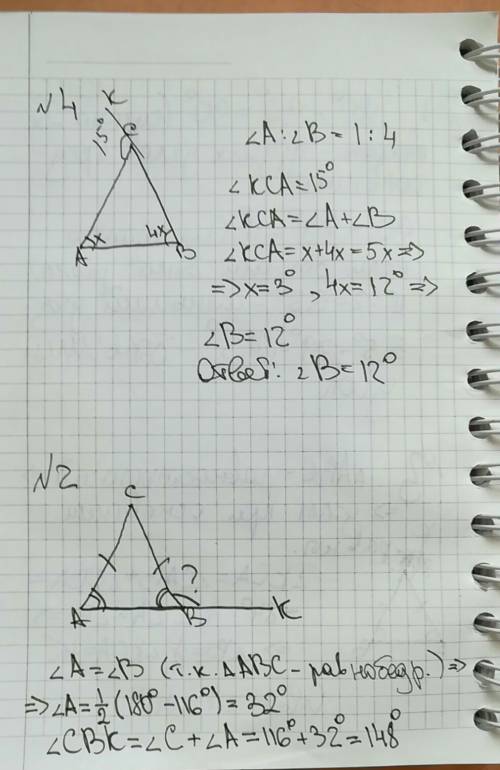 №4
K
C
15°
x
4x
A
B
∠A:∠B=1:4
∠KCA=15°
∠KCA=∠A+∠B
∠KCA=x+4x=5x=>
=>x=3°, 4x=12°=>
∠B=12°
Ответ: ∠B=12°
№2
C
?
A
B
K
∠A=∠B (т.к. ΔABC - равнобедр.)=>
=>∠A=½(180°-116°)=32°
∠CBK=∠C+∠A=116°+32°=148°